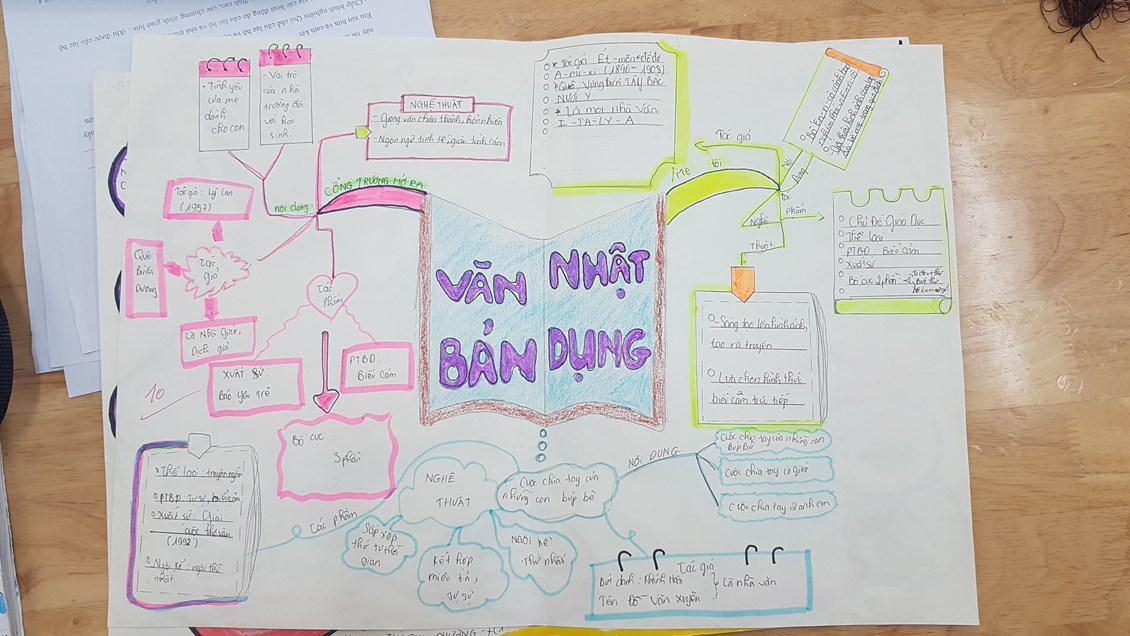 VĂN NHẬT
BẢN DỤNG
CỔNG TRƯỜNG MỞ RA
nội dung
- Tình yêu
của mẹ
dành
cho con
- Vai trò
của nhà
trường đối
với học
sinh.
NGHỆ THUẬT
- Giọng văn chân thành, hồn nhiên
- Ngôn ngữ tinh tế, giàu tình cảm
Tác
giả
Tác giả: Lý Lan
(1957)
Quê
Bình
Dương
Là Nhà Giáo,
Dịch giả
Tác
phẩm
XUẤT SỨ:
Báo yêu trẻ
PTBĐ:
Biểu Cảm
Bố cục:
3 phần
10
Mẹ
tôi
Tác giả
* Tác giả Ét-môn-đô đơ
A-mi-xi (1846-1908)
* Quê Vùng biển TÂY BẮC
NƯỚC Ý
* Là một nhà Văn
I-TA-LY-A
Nội
Dung
Tác
Phẩm
Chủ Đề Giáo Dục
Thể loại
PTBĐ: Biểu cảm
Xuất sứ
Bố cục 2 phần:
Nghệ
Thuật
Sáng tạo lên hình ảnh,
tạo ra truyện
Lựa chọn hình thức
biểu cảm trực tiếp
Cuộc chia tay của
những con búp bê
NỘI DUNG
Cuộc chia tay của những con
Búp Bê
Cuộc chia tay cô giáo
Cuộc chia tay 2 anh em
NGHỆ
THUẬT
Sắp xếp
thứ tự thời
gian
Kết hợp
miêu tả,
tự sự
Ngôi kể
thứ nhất
Tác phẩm
Thể loại: truyện ngắn
PTBĐ: Tự sự, biểu cảm
Xuất sứ: Giải
cuộc thi văn
(1992)
Ngôi kể: ngôi thứ
nhất
Tác giả
Bút danh: Khánh Hoài
Tên Đỗ Văn Xuyền
Là nhà văn